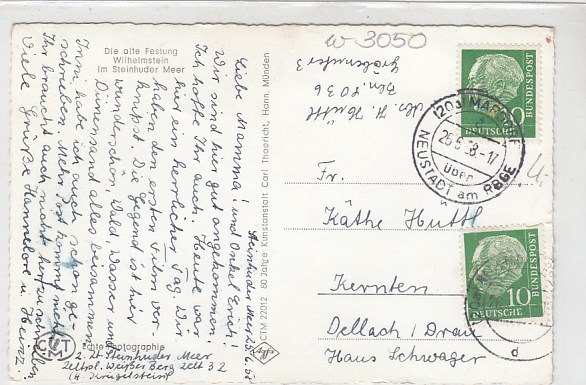 w-3050
Die alte Festung
Wilhelmstein
im Steinhuder Meer
Steinhuder Meer 25.6.58
Liebe Mamma! und Onkel Erich!
Wir sind hier gut angekommen.
Ich hoffe Ihr auch. Heute war
hier ein herrlicher Tag. Wir
haben den ersten Film ver-
knipst. Die Gegend ist hier
wunderschön, Wald, Wasser und
Dünensand alles beisammen.
Inni habe ich auch schon ge-
schrieben. Mehr Post kommt nicht
Ihr braucht auch nicht schreiben
Viele Grüße Hannelore u Heinz.
Echte Photographie
CUT
M
z. Zt Steinhuder Meer
Zeltpl. Weißer Berg Zelt 32
CTM 22012 60 Jahre Kunstanstalt Carl Thoericht, Hann. Münden
Agfa
Abs. H. Huttl
Bln. SO 36
3
Fr.
Käthe Huttl
Kärnten
Dellach / Drau
Haus Schwager
10
DEUTSCHE
BUNDESPOST
(20a) MARDORF
a
26.6.58.-17
über
NEUSTADT am RBGE
10
DEUTSCHE
BUNDESPOST
d